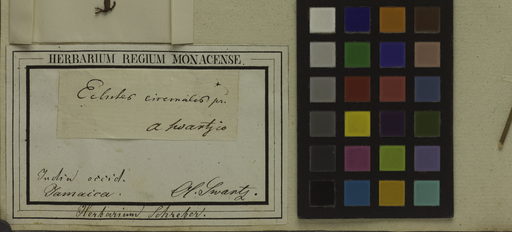 HERBARIUM REGIUM MONACENSE.
Echites circinalis
a Swartzio
India occid.
Jamaica. Ol. Swartz.
Herbarium Schreber.